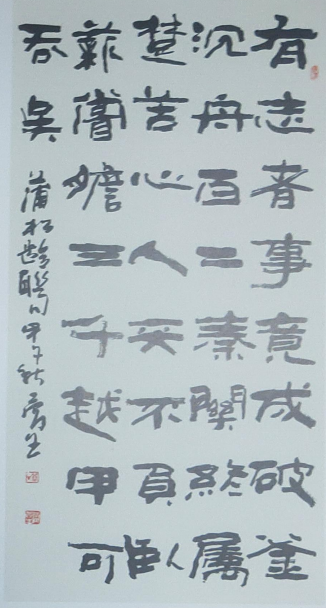 有志者事竟成破釜
沉舟百二秦關終屬
楚苦心人天不負臥
薪嘗膽三千越甲可
吞吳
蒲松齡聯句甲午秋